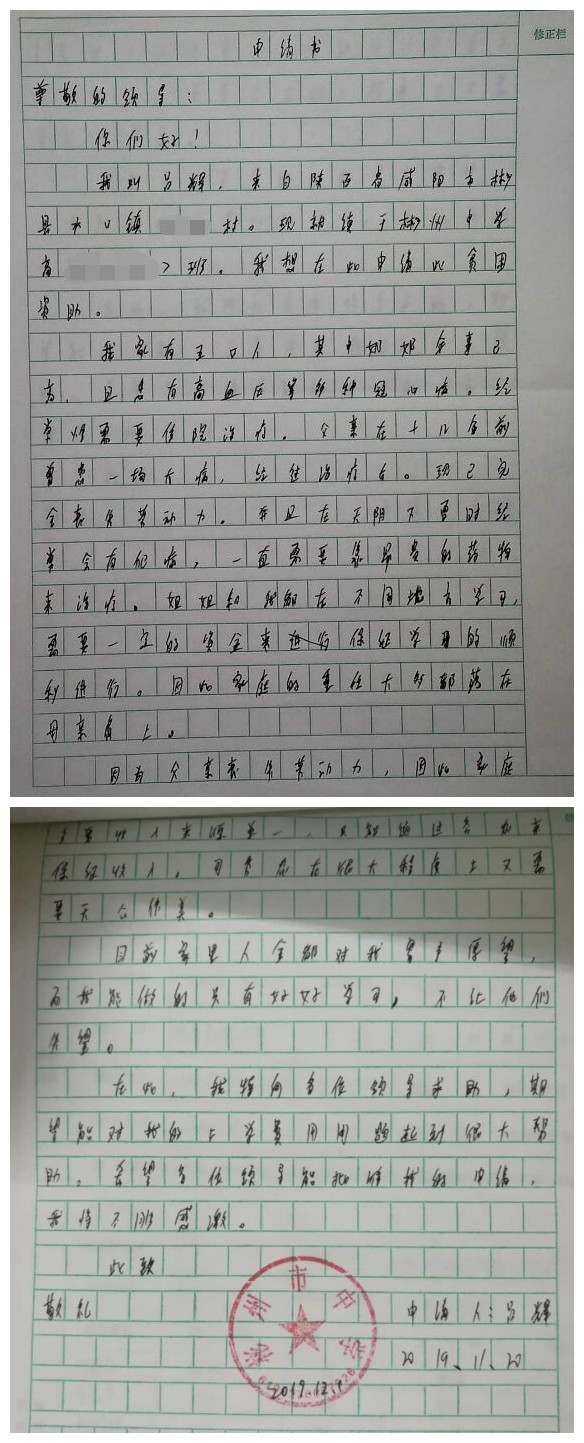 修正栏
申请书
尊敬的领导：
你们好！
我叫吕辉，来自陕西省咸阳市彬
县水口镇村。现就读于彬州中学
高>班。我想在此申请此贫困
资助。
我家有五口人，其中奶奶年事已
高，且患有高血压等多种冠心病。经
常性需要住院治疗。父亲在十几年前
曾患一场大病，经过治疗后。现已完
全丧失劳动力。并且在天阴下雨时经
常会有犯病，一直需要靠昂贵的药物
来治疗。姐姐和我都在不同地方学习，
需要一定的资金来保证学习的顺
利进行。因此家庭的重任大多都落在
母亲肩上。
因为父亲丧失劳动力，因此家庭
主要收入来源单一，只能通过务农来
保证收入。可务农在很大程度上又需
要天公作美。
目前家里人全都对我寄予厚望，
而我能做的只有好好学习，不让他们
失望。
在此，我特向各位领导求助，期
望能对我的上学费用问题起到很大帮
助。希望各位领导能批准我的申请，
我将不胜感激。
此致
敬礼
申请人：吕辉
2019、11、20
彬州市中学
2019.12.1